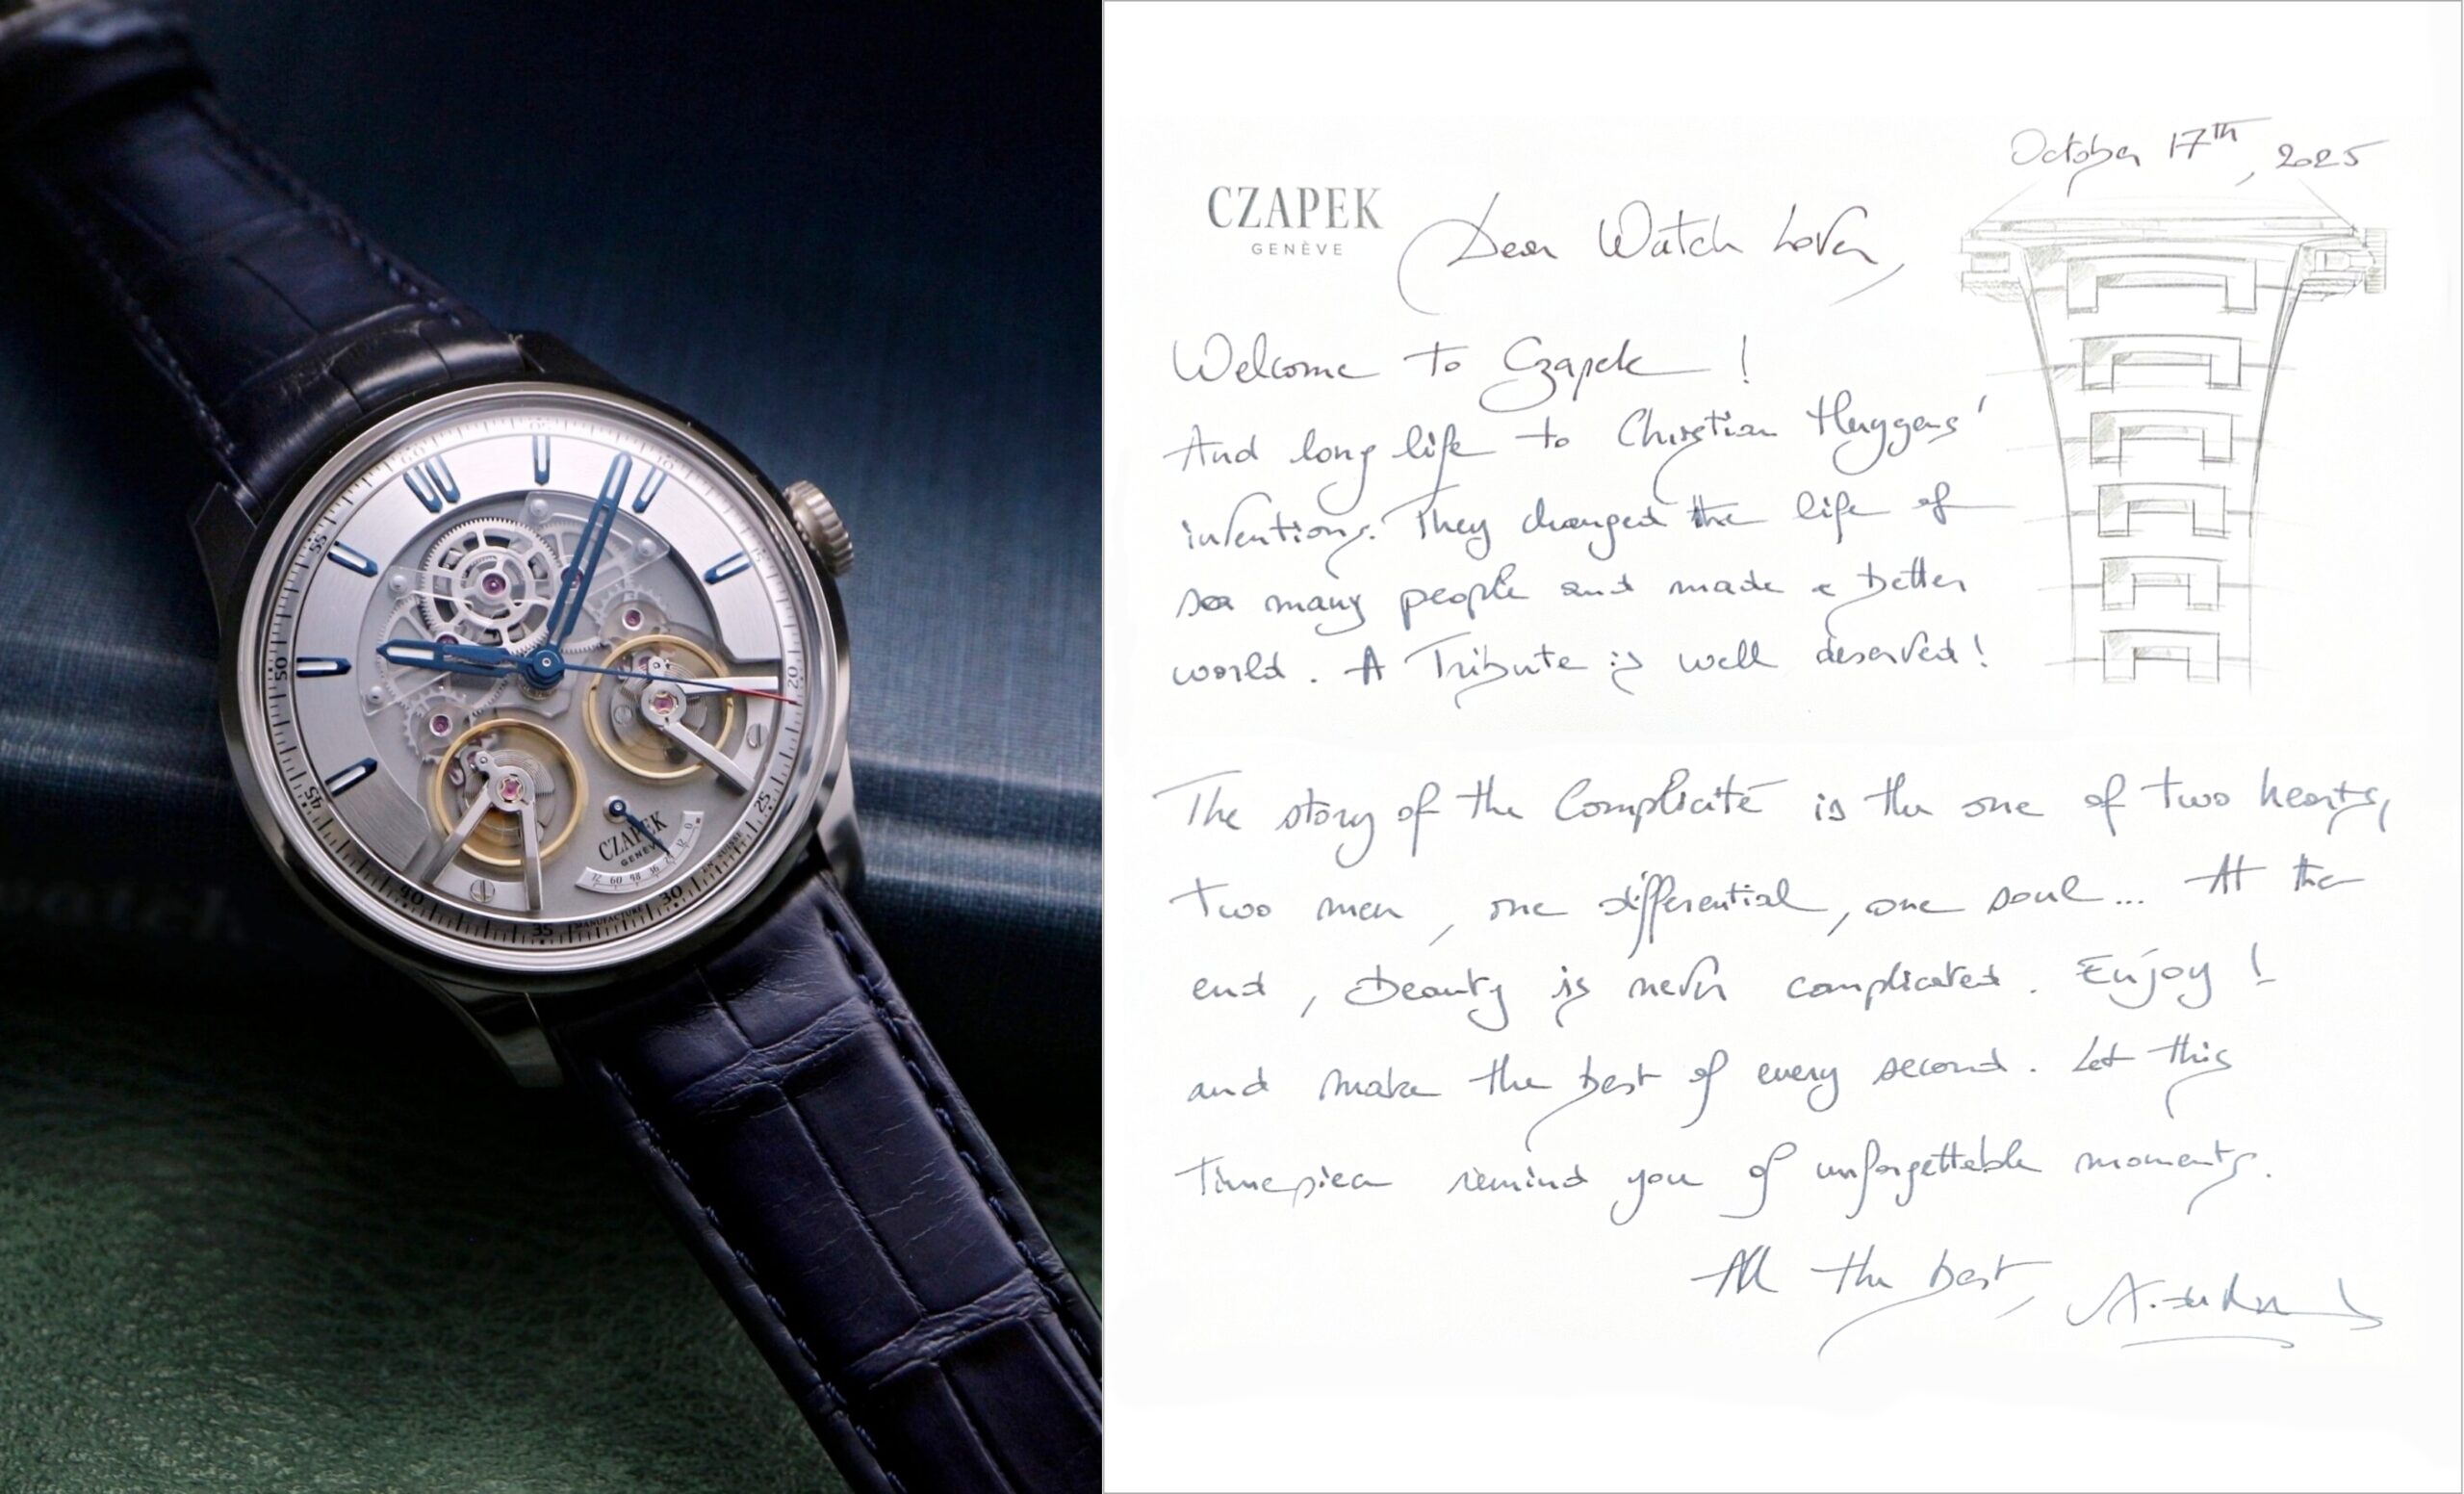 60
05
10
15
20
25
30
35
40
45
50
55
CZAPEK
GENÈVE
72 60 48 36 24 12 0
MANUFACTURE
EN SUISSE
October 17th, 2025
CZAPEK
GENÈVE
Dear Watch Lover,
Welcome to Czapek !
And long life to Christian Huygens'
inventions. They changed the life of
so many people and made a better
world. A Tribute is well deserved!
The story of the Complicité is the one of two hearts,
two men, one differential, one soul... At the
end, Beauty is never complicated. Enjoy !
and make the best of every second. Let this
Timepiece remind you of unforgettable moments.
All the best,